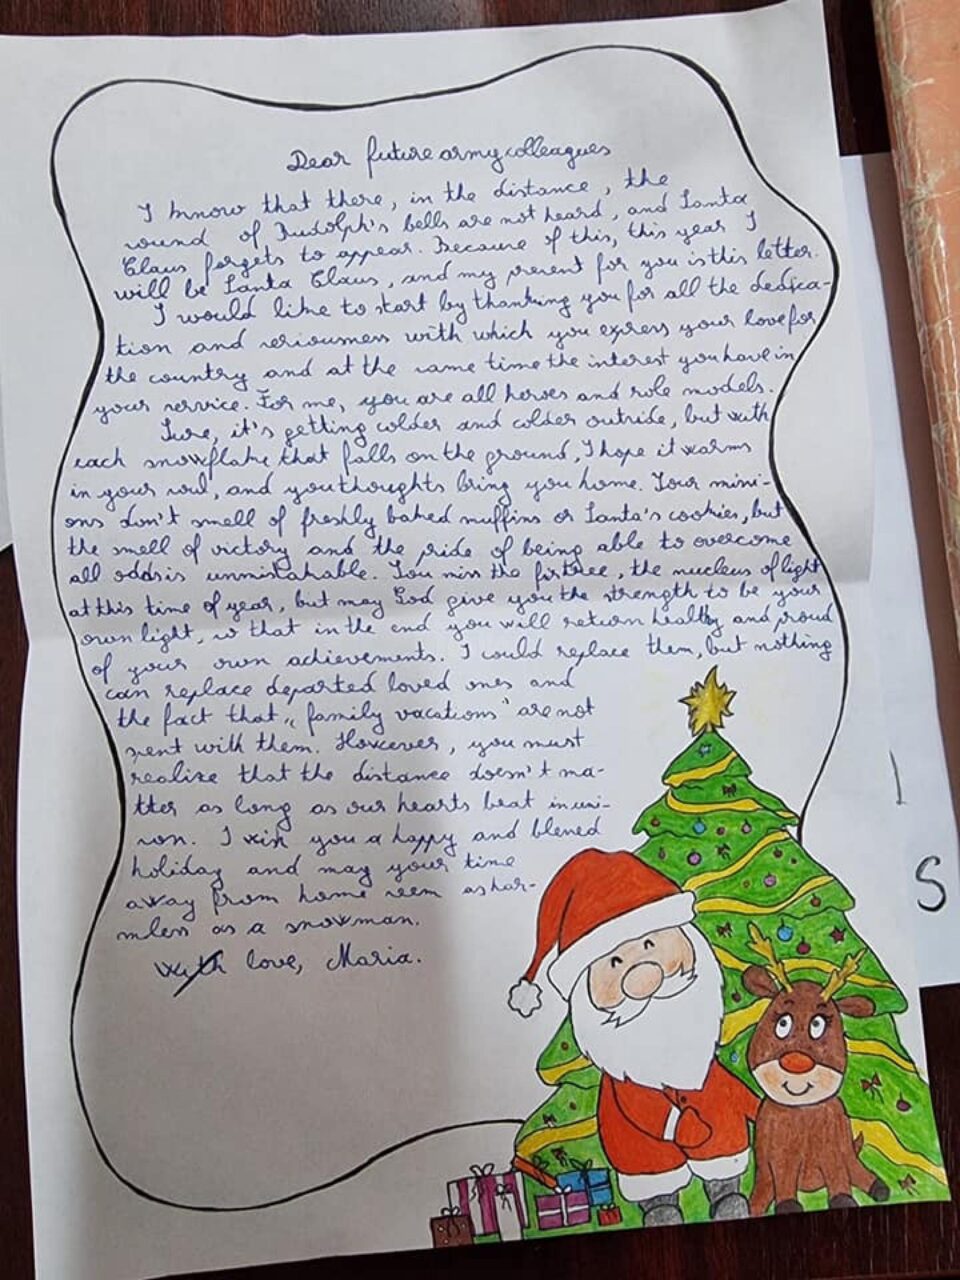 Dear future army colleagues
I know that there, in the distance, the
sound of Rudolph's bells are not heard, and Santa
Claus forgets to appear. Because of this, this year I
will be Santa Claus, and my present for you is this letter.
I would like to start by thanking you for all the dedica-
tion and seriousness with which you express your love for
the country and at the same time the interest you have in
your service. For me, you are all heroes and role models.
Sure, it's getting colder and colder outside, but with
each snowflake that falls on the ground, I hope it warms
in your soul, and you thoughts bring you home. Your missi-
ons don't smell of freshly baked muffins or Santa's cookies, but
the smell of victory and the pride of being able to overcome
all odds is unmistakable. You miss the firtree, the nucleus of light
at this time of year, but may God give you the strength to be your
own light, so that in the end you will return healthy and proud
of your own achievements. I could replace them, but nothing
can replace departed loved ones and
the fact that „family vacations" are not
spent with them. However, you must
realize that the distance doesn't ma-
tter as long as our hearts beat in uni-
son. I wish you a happy and blessed
holiday and may your time
away from home seem as har-
mless as a snowman.
With love, Maria.
S